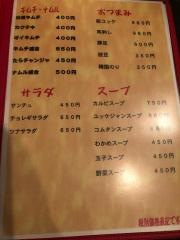 キムチ・ナムル
白菜キムチ 400円
カクテキ 400円
オイキムチ 400円
キムチ盛合 650円
たらチャンジャ 450円
ナムル盛合 500円
おつまみ
塩ユッケ
馬刺し
豚足
枝豆
韓国のり 350円
サラダ
サンチュ 450円
チョレギサラダ 650円
ツナサラダ 650円
スープ
カルビスープ 750円
ユッケジャンスープ 650円
コムタンスープ 650円
わかめスープ 450円
玉子スープ 450円
野菜スープ 450円